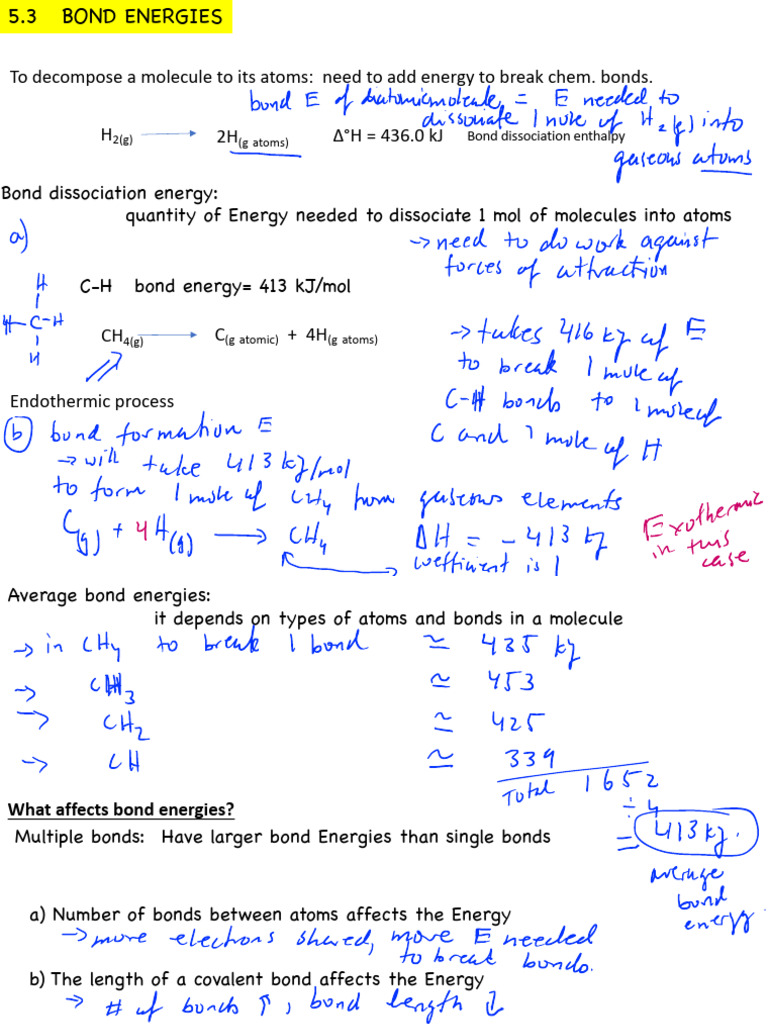 5.3 BOND ENERGIES
To decompose a molecule to its atoms: need to add energy to break chem. bonds.
bond E of diatomic molecule = E needed to
dissociate 1 mole of H2(g) into
gaseous atoms
H2(g) → 2H(g atoms) Δ°H = 436.0 kJ Bond dissociation enthalpy
Bond dissociation energy:
quantity of Energy needed to dissociate 1 mol of molecules into atoms
a)
→ need to do work against
forces of attraction
H
H-C-H
H
C-H bond energy= 413 kJ/mol
CH4(g) → C(g atomic) + 4H(g atoms)
→ takes 416 kJ of E
to break 1 mole of
C-H bonds to 1 mole of
C and 1 mole of H
Endothermic process
b) bond formation E
→ will take 413 kJ/mol
to form 1 mole of CH4 from gaseous elements
C(g) + 4H(g) → CH4 ΔH = -413 kJ
coefficient is 1
Exothermic
in this
case
Average bond energies:
it depends on types of atoms and bonds in a molecule
→ in CH4 to break 1 bond ≃ 435 kJ
→ CH3 ≃ 453
→ CH2 ≃ 425
→ CH ≃ 339
Total 1652
÷ 4
= 413 kJ.
average
bond
energy
What affects bond energies?
Multiple bonds: Have larger bond Energies than single bonds
a) Number of bonds between atoms affects the Energy
→ more electrons shared, more E needed
to break bonds.
b) The length of a covalent bond affects the Energy
→ # of bonds ↑, bond length ↓